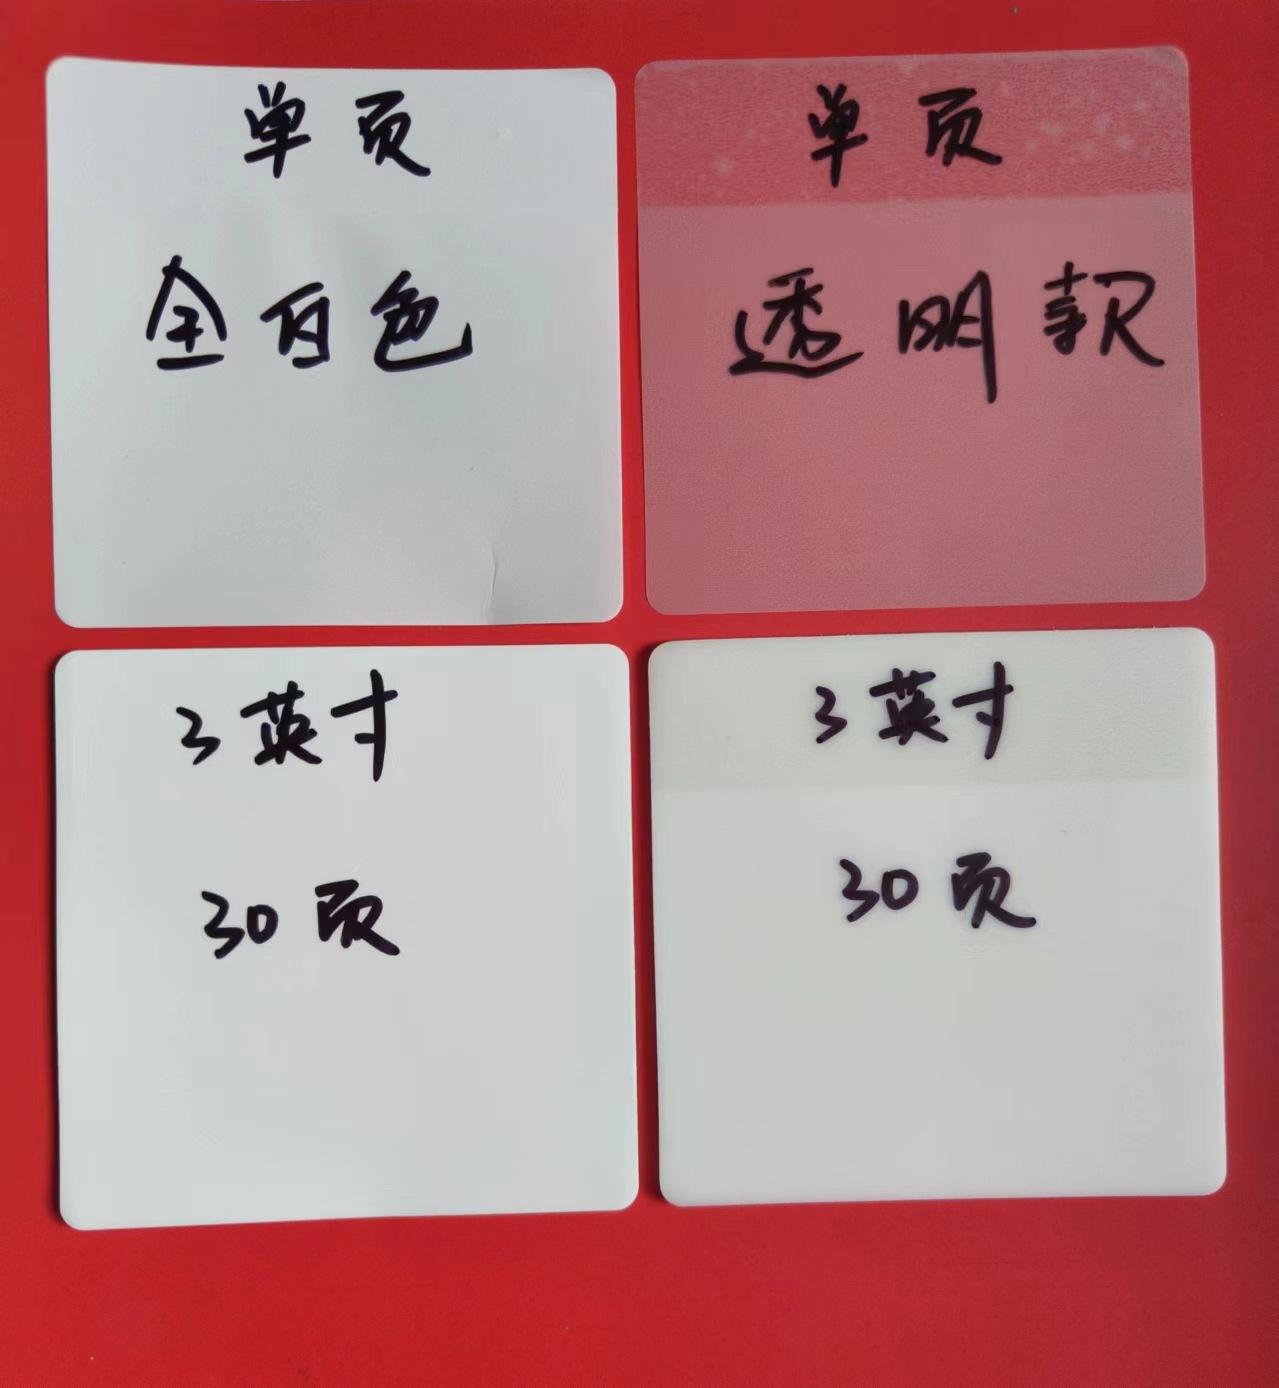 单页
全白色
单页
透明款
3英寸
30页
3英寸
30页